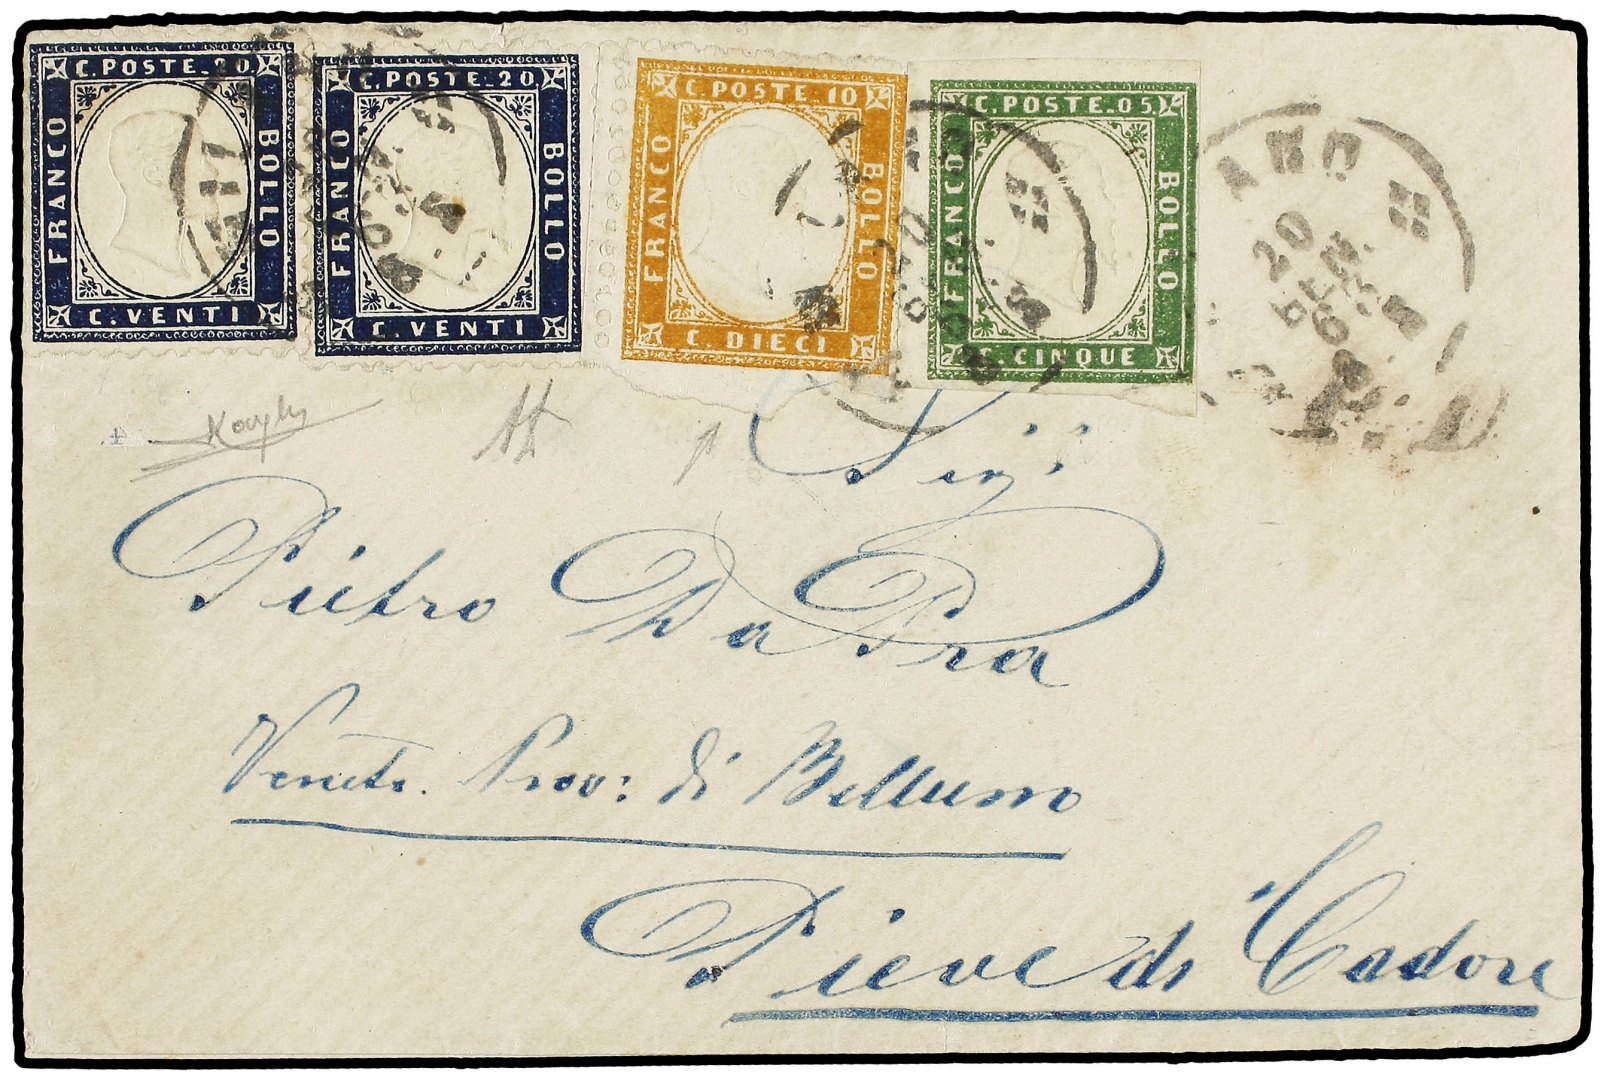 C. POSTE. 20
FRANCO
BOLLO
C. VENTI
C. POSTE. 20
FRANCO
BOLLO
C. VENTI
C. POSTE. 10
FRANCO
BOLLO
C. DIECI
C. POSTE. 05
FRANCO
BOLLO
C. CINQUE
20
GEN
63
P.D
Sig.
Pietro Da Pra
Veneto. Prov: di Belluno
Pieve di Cadore